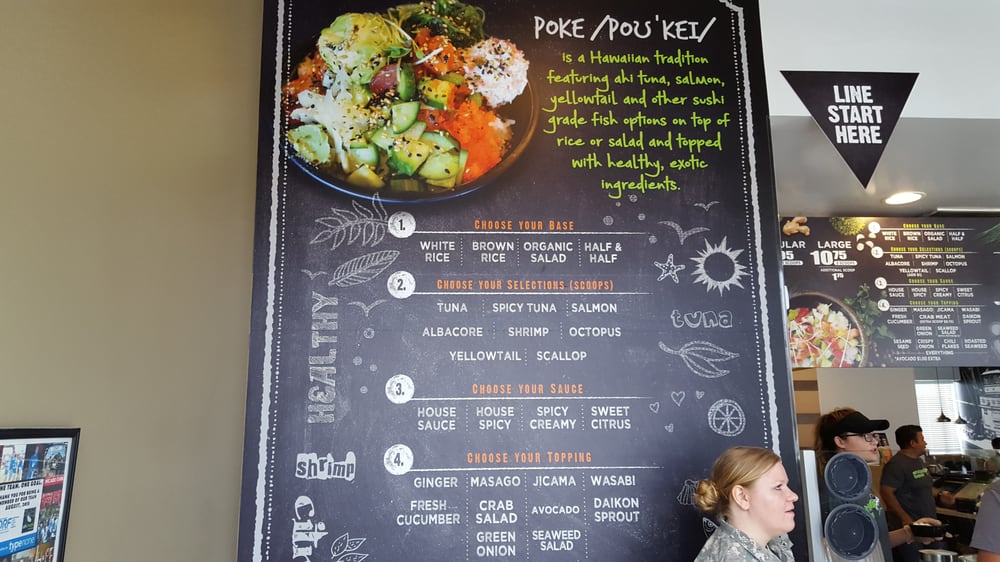 POKE /POU'KEI/
is a Hawaiian tradition
featuring ahi tuna, salmon,
yellowtail and other sushi
grade fish options on top of
rice or salad and topped
with healthy, exotic
ingredients.
1. CHOOSE YOUR BASE
WHITE RICE BROWN RICE ORGANIC SALAD HALF & HALF
2. CHOOSE YOUR SELECTIONS (SCOOPS)
TUNA SPICY TUNA SALMON
ALBACORE SHRIMP OCTOPUS
YELLOWTAIL SCALLOP
3. CHOOSE YOUR SAUCE
HOUSE SAUCE HOUSE SPICY SPICY CREAMY SWEET CITRUS
4. CHOOSE YOUR TOPPING
GINGER MASAGO JICAMA WASABI
FRESH CUCUMBER CRAB SALAD AVOCADO DAIKON SPROUT
GREEN ONION SEAWEED SALAD
HEALTHY
shrimp
tuna
LINE
START
HERE
LARGE
1075
ADDITIONAL SCOOP
175
CHOOSE YOUR BASE
WHITE RICE BROWN RICE ORGANIC SALAD HALF & HALF
CHOOSE YOUR SELECTIONS (SCOOPS)
TUNA SPICY TUNA SALMON
ALBACORE SHRIMP OCTOPUS
YELLOWTAIL SCALLOP
CHOOSE YOUR SAUCE
HOUSE SAUCE HOUSE SPICY SPICY CREAMY SWEET CITRUS
CHOOSE YOUR TOPPING
GINGER MASAGO JICAMA WASABI
FRESH CUCUMBER CRAB MEAT DAIKON SPROUT
GREEN ONION SEAWEED SALAD
SESAME SEED CRISPY ONION CHILI FLAKES ROASTED SEAWEED
EVERYTHING
*AVOCADO $1.00 EXTRA